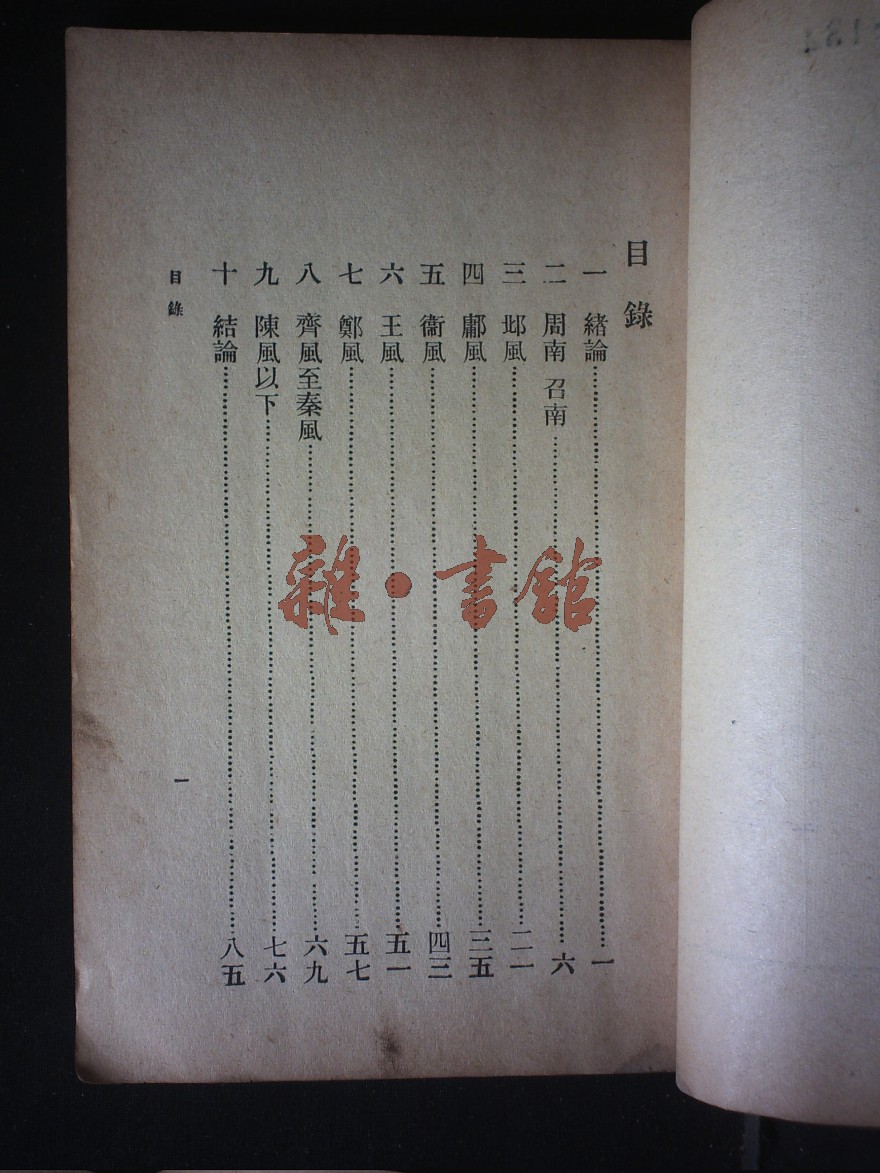 目錄
一 緒論……一
二 周南 召南……六
三 邶風……二一
四 鄘風……三五
五 衞風……四三
六 王風……五一
七 鄭風……五七
八 齊風至秦風……六九
九 陳風以下……七六
十 結論……八五
目錄 一
雜·書館